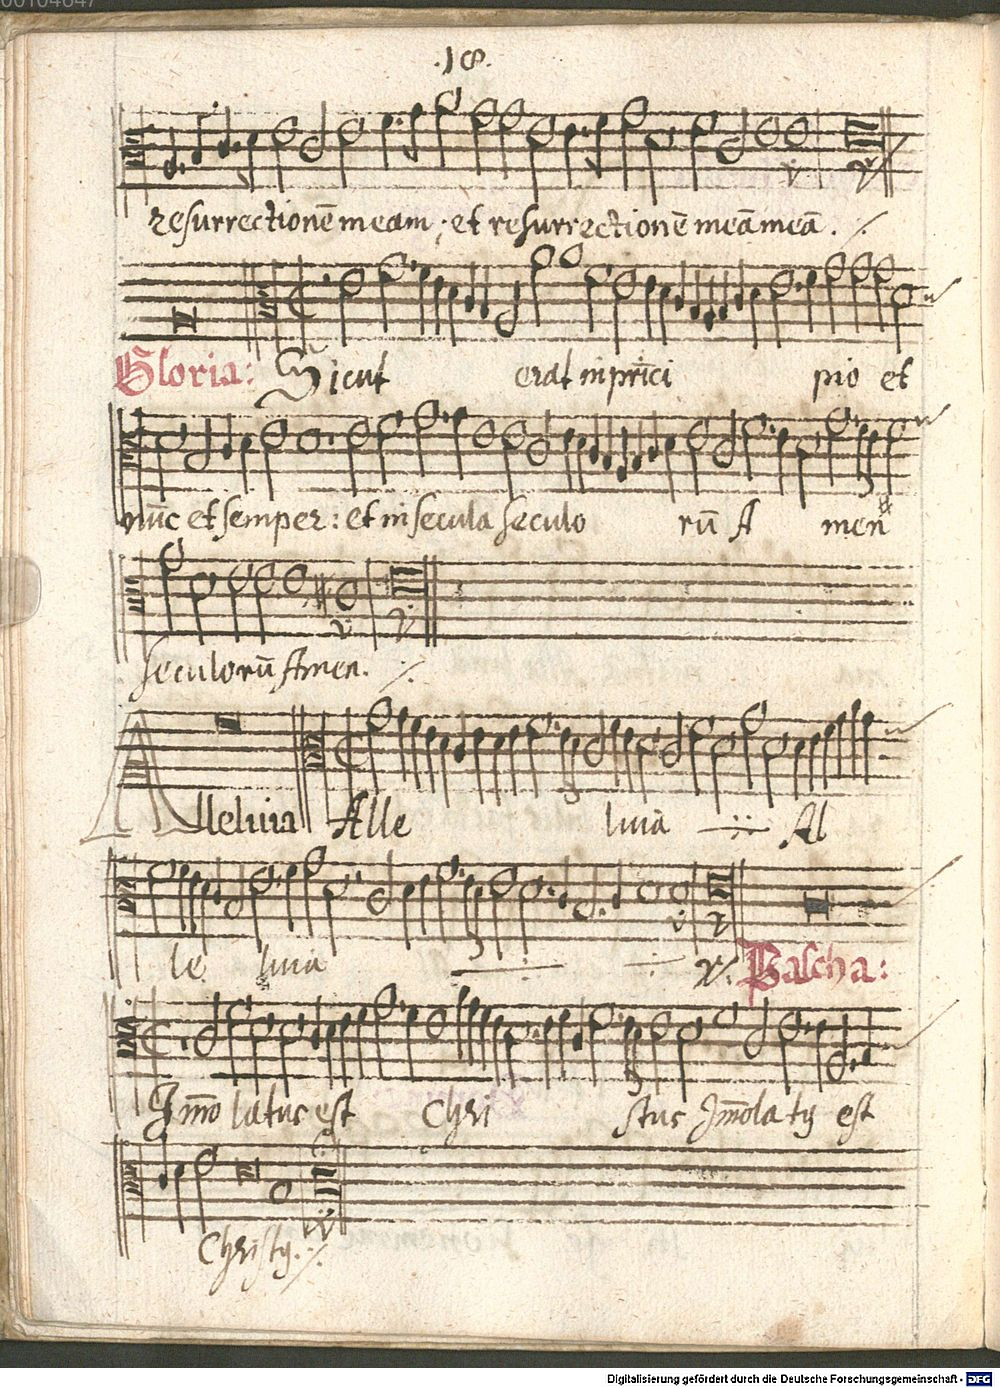 00104647
.18.
resurrectionē meam, et resurrectionē meā meā. ./.
Gloria: Sicut erat in prīci pio et
nūc et semper: et in secula seculo rū A men
seculorū Amen. ./.
Alleluia Alle luia Al
le luia Pascha:
Im̄o latus est Chri stus Im̄olatꝰ est
Christꝰ. ./.
Digitalisierung gefördert durch die Deutsche Forschungsgemeinschaft - DFG